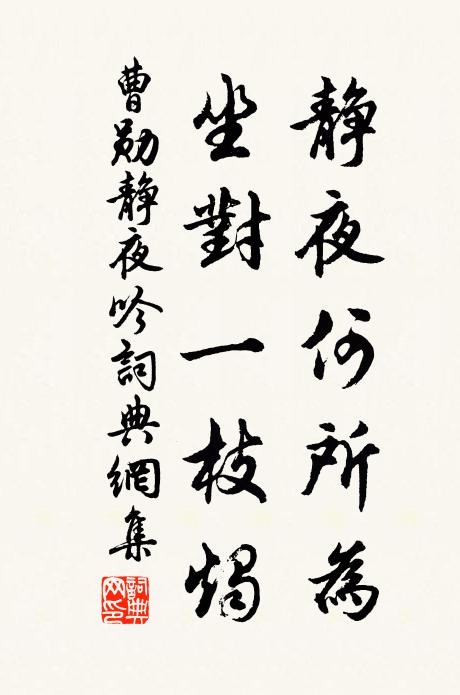 靜夜何所為
坐對一枝燭
曹勛靜夜吟詞典網集
詞典
网印